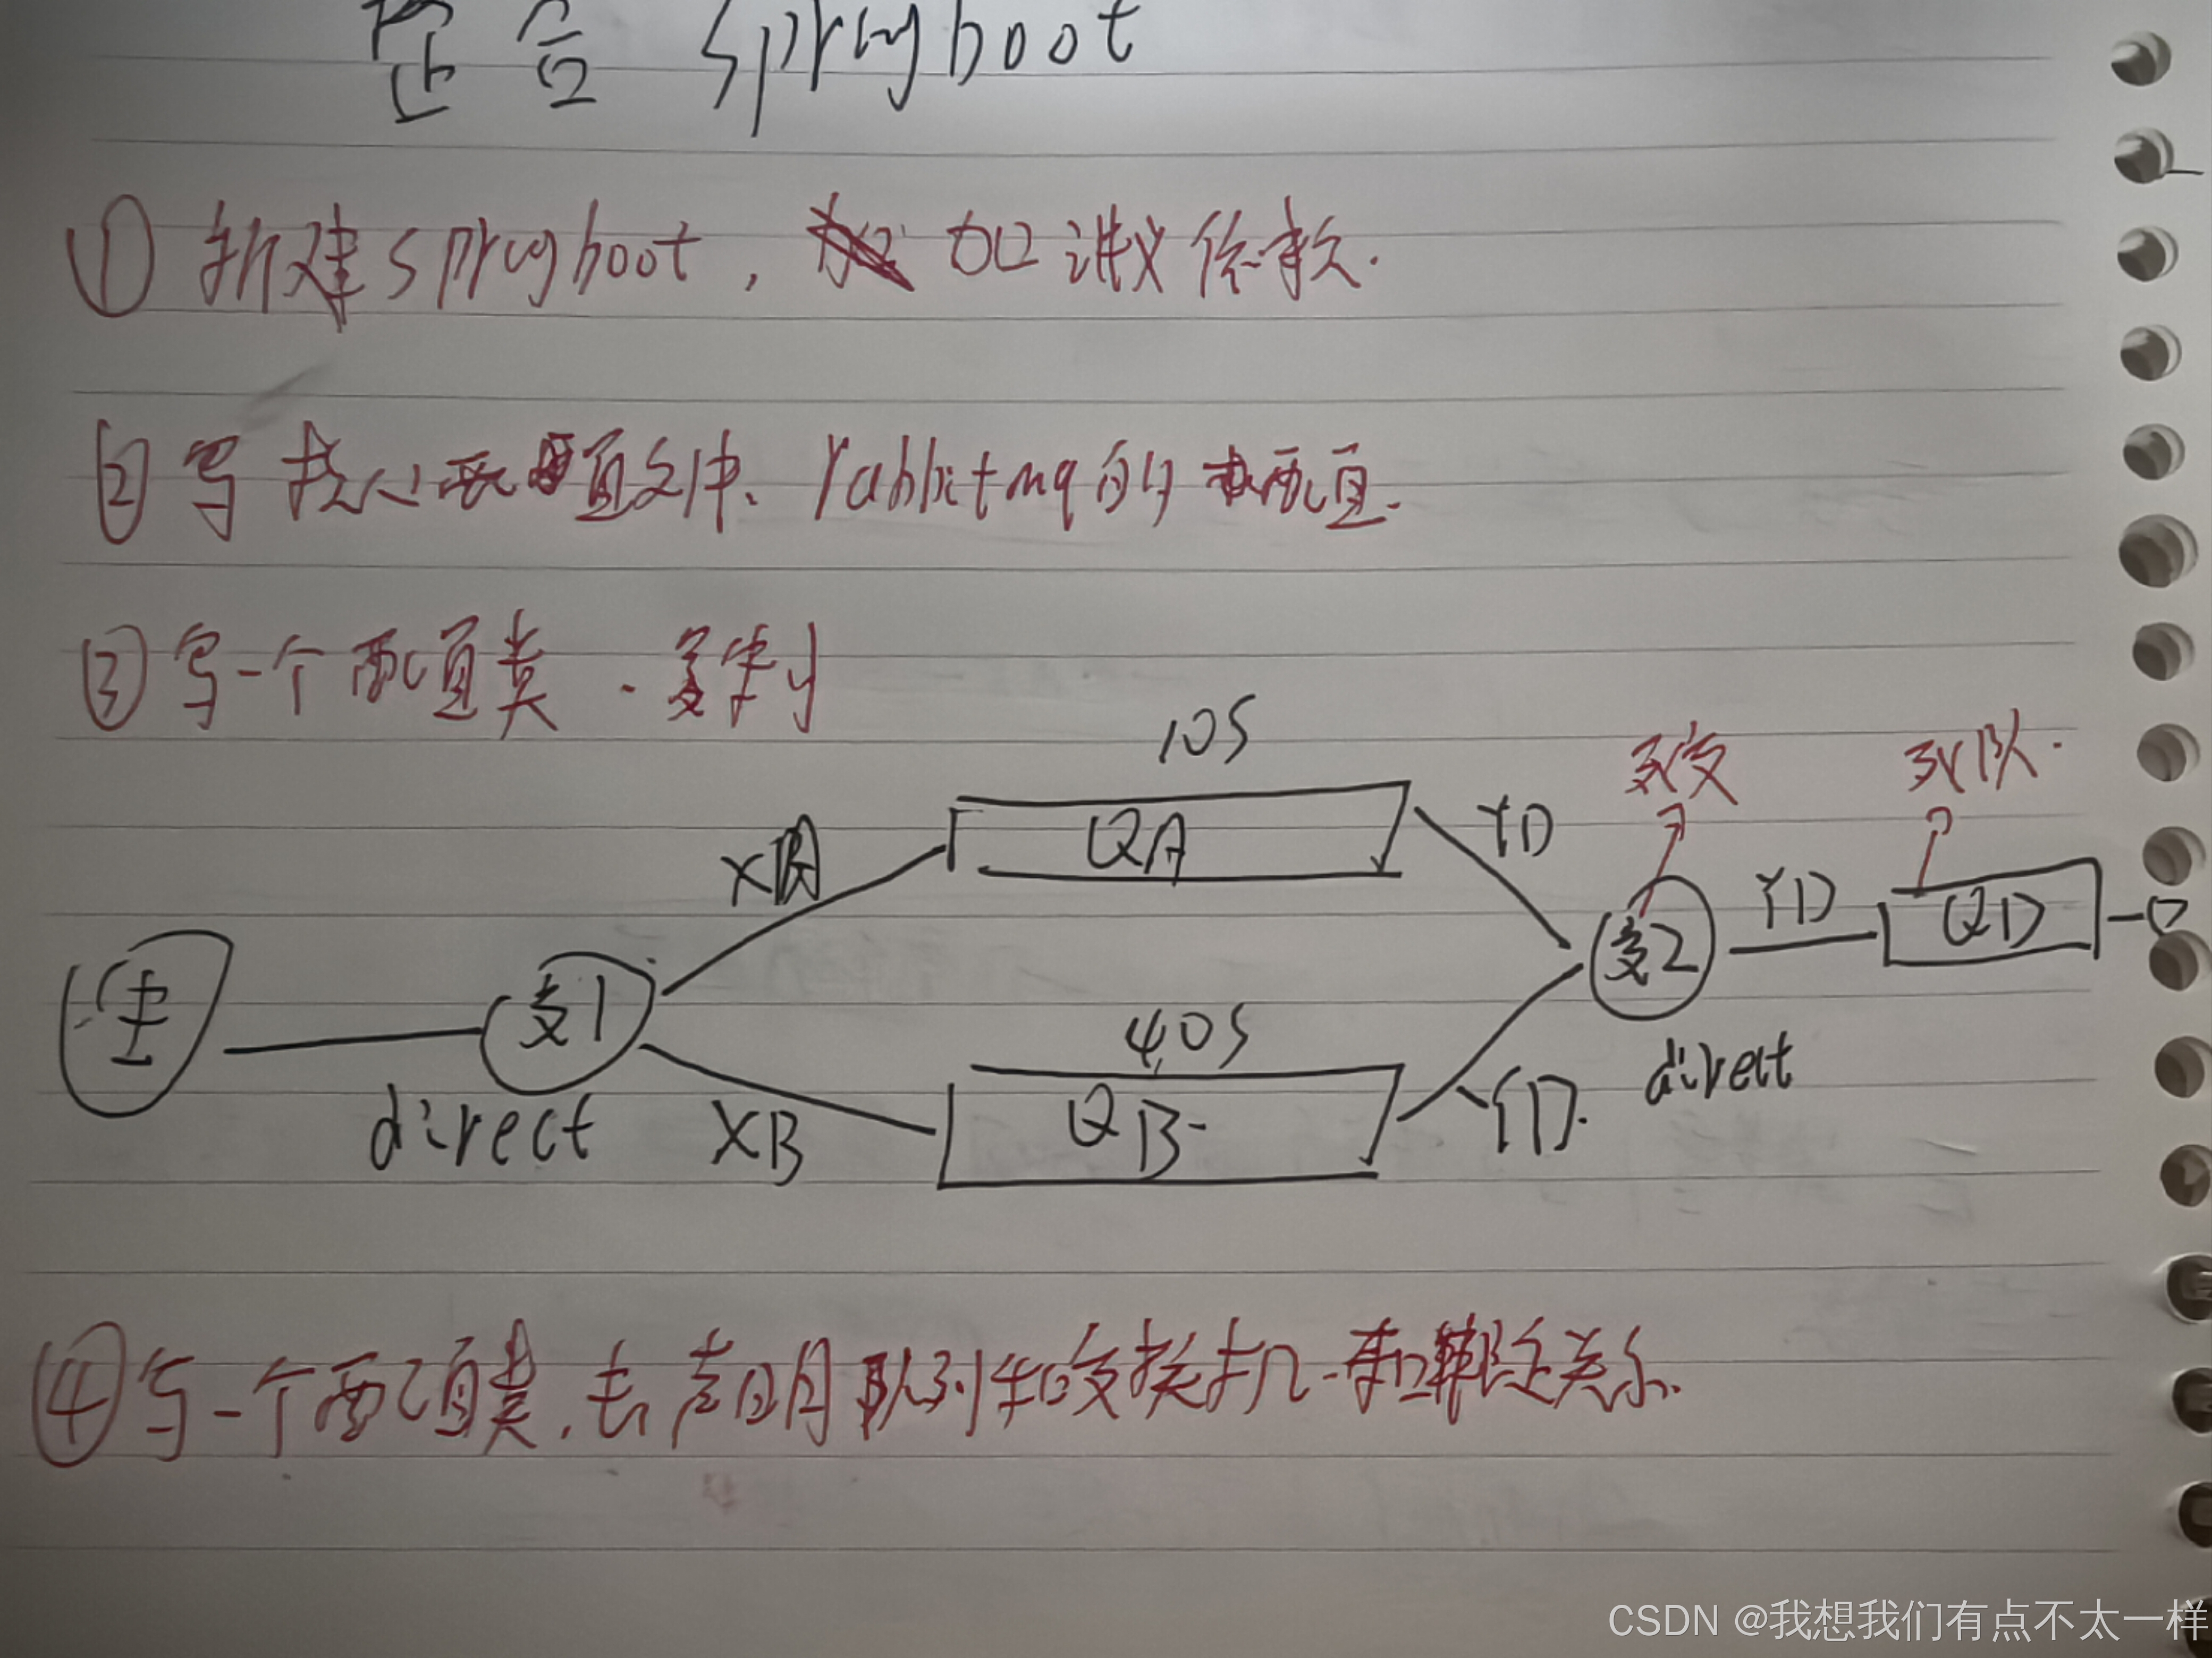 整合 springboot
① 新建springboot, 加讲义依赖.
② 写核心配置文件、rabbitmq的配置.
③ 写一个配置类.
10S
死交 死队.
XA QA YD
交2 YD QD
生 交1
40S
direct XB QB YD. direct
④ 写一个配置类,去声明队列和交换机-和绑定关系.
CSDN @我想我们有点不太一样